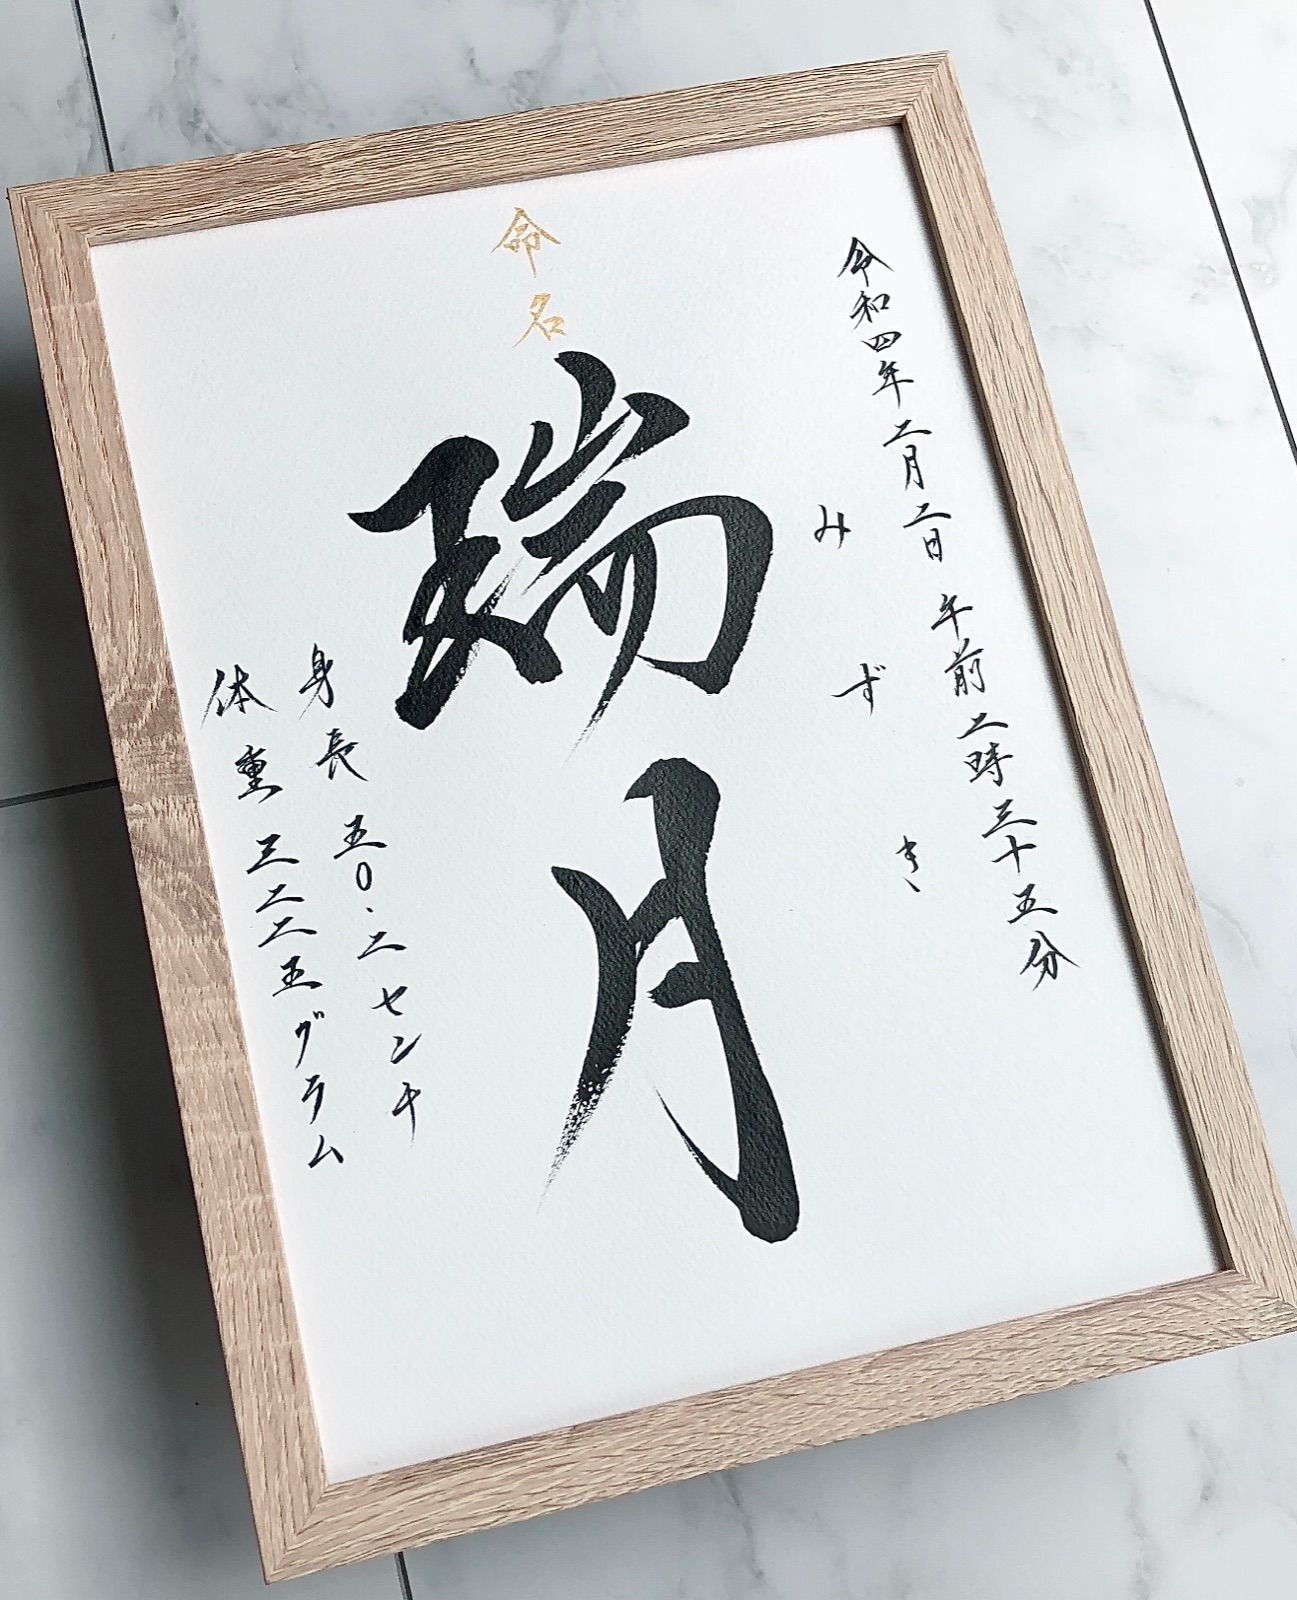 令和四年二月二日 午前二時三十五分
みずき
命名
瑞月
身長 五〇.二センチ
体重 三二二五グラム